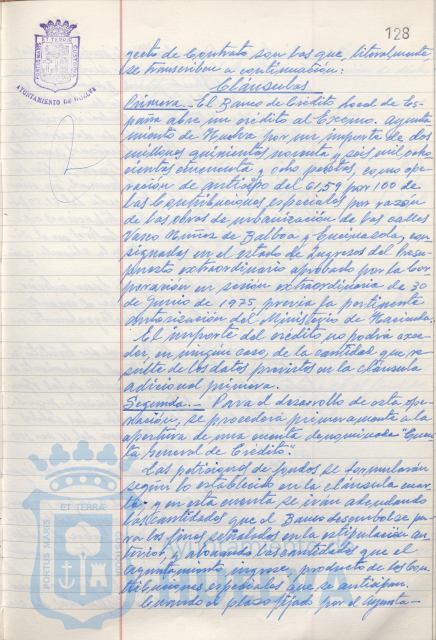 128
PORTUS MARIS ET TERRÆ CUSTODIA
AYUNTAMIENTO DE HUELVA
yecto de Contrato son los que, literalmente,
se transcriben a continuación:
Cláusulas
Primera.- El Banco de Crédito Local de Es-
paña abre un crédito al Excmo. Ayunta-
miento de Huelva por un importe de dos
millones quinientas noventa y seis mil, ocho
cientas cincuenta y ocho pesetas, como ope-
ración de anticipo del 61,59 por 100 de
las Contribuciones especiales por razón
de las obras de urbanización de las calles
Vasco Núñez de Balboa y Encinasola, con-
signadas en el estado de Ingresos del Presu-
puesto extraordinario aprobado por la Cor-
poración en sesión extraordinaria de 30
de Junio de 1975 previa la pertinente
autorización del Ministerio de Hacienda.
El importe del crédito no podrá exce-
der, en ningún caso, de la cantidad que re-
sulte de los datos previstos en la cláusula
adicional primera.
Segunda.- Para el desarrollo de esta ope-
ración, se procederá primeramente a la
apertura de una cuenta denominada "Cuen-
ta General de Crédito".
Las peticiones de fondos se formularán
según lo establecido en la cláusula cuar-
ta, y en esta cuenta se irán adeudando
las cantidades que el Banco desembolse pa-
ra los fines señalados en la estipulación an-
terior, y abonando las cantidades que el
Ayuntamiento ingrese producto de las Con-
tribuciones especiales que se anticipan.
Cuando el plazo fijado por el Ayunta-
PORTUS MARIS ET TERRÆ